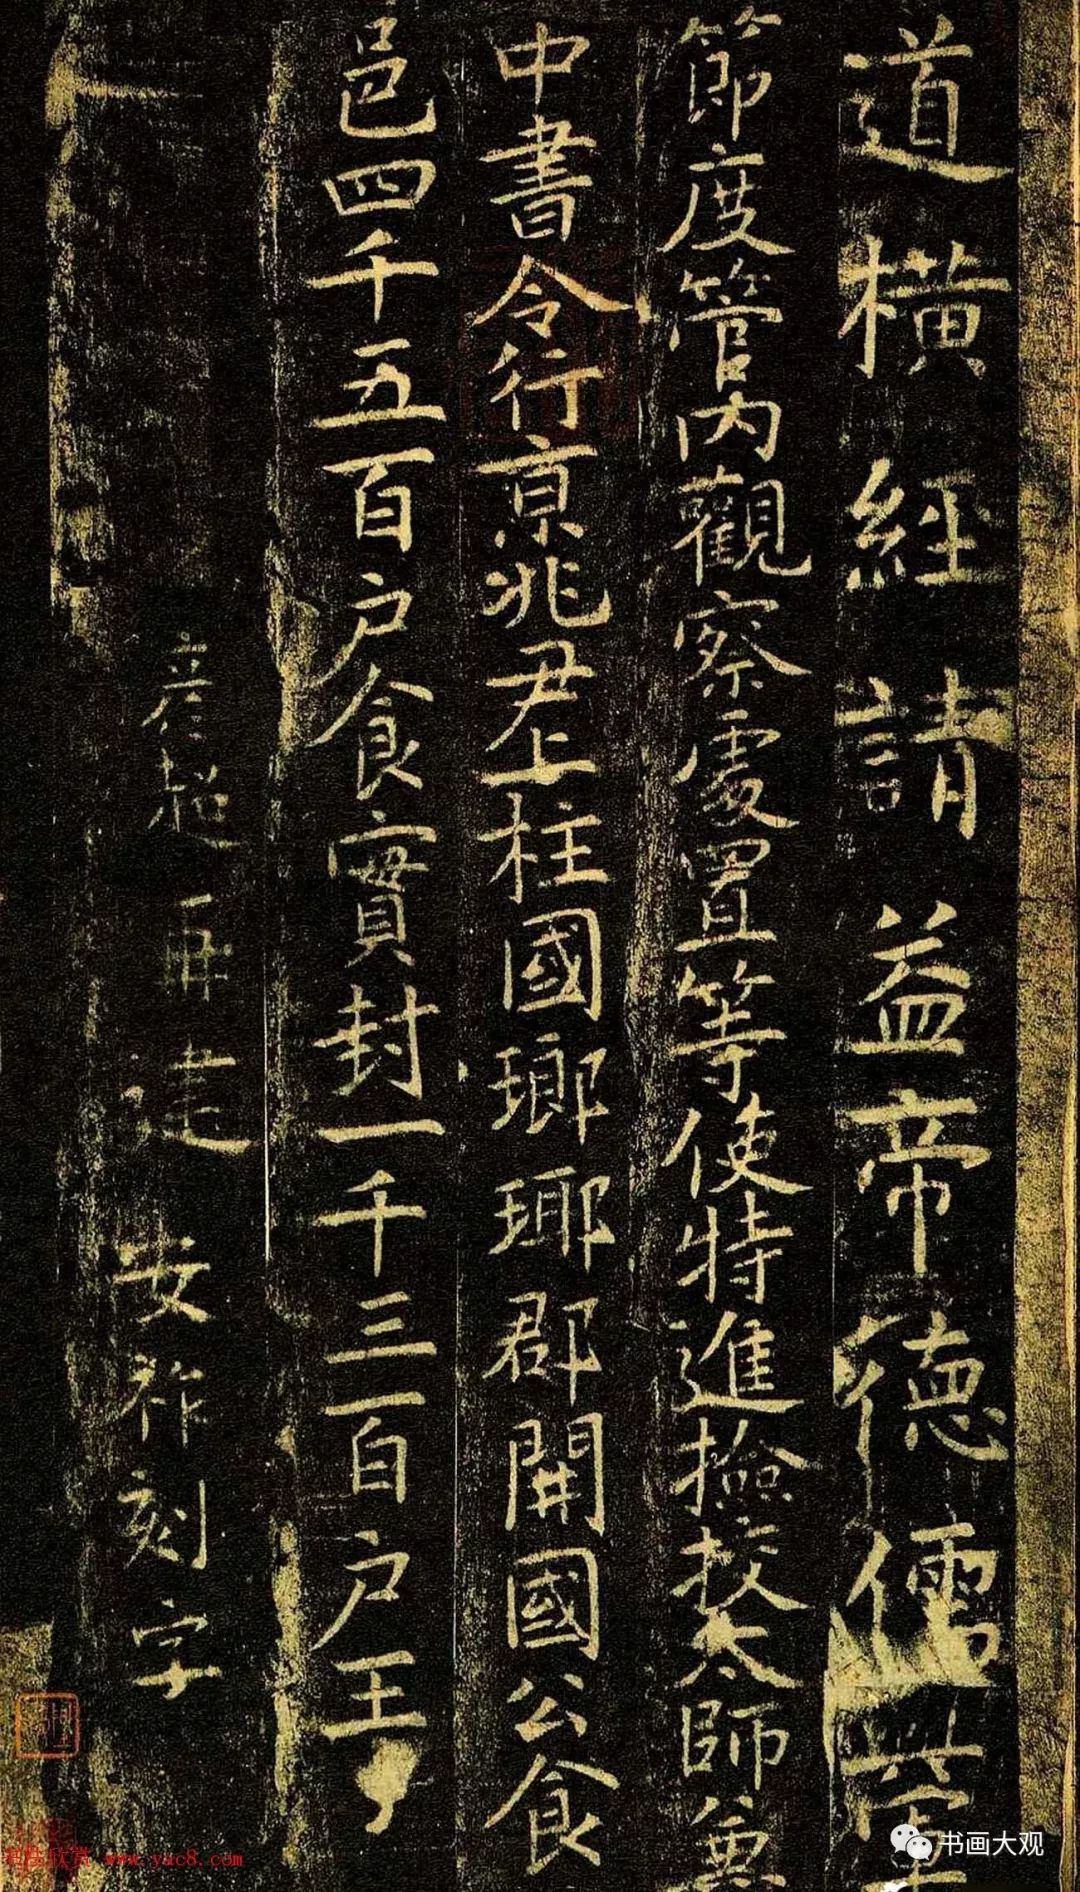 道橫經請益帝德儒
節度管內觀察處置等使特進撿挍太師兼
中書令行京兆尹上柱國瑯瑘郡開國公食
邑四千五百户食實封一千三百户王彥超再建
安祚刻字
书画大观
www.yac8.com